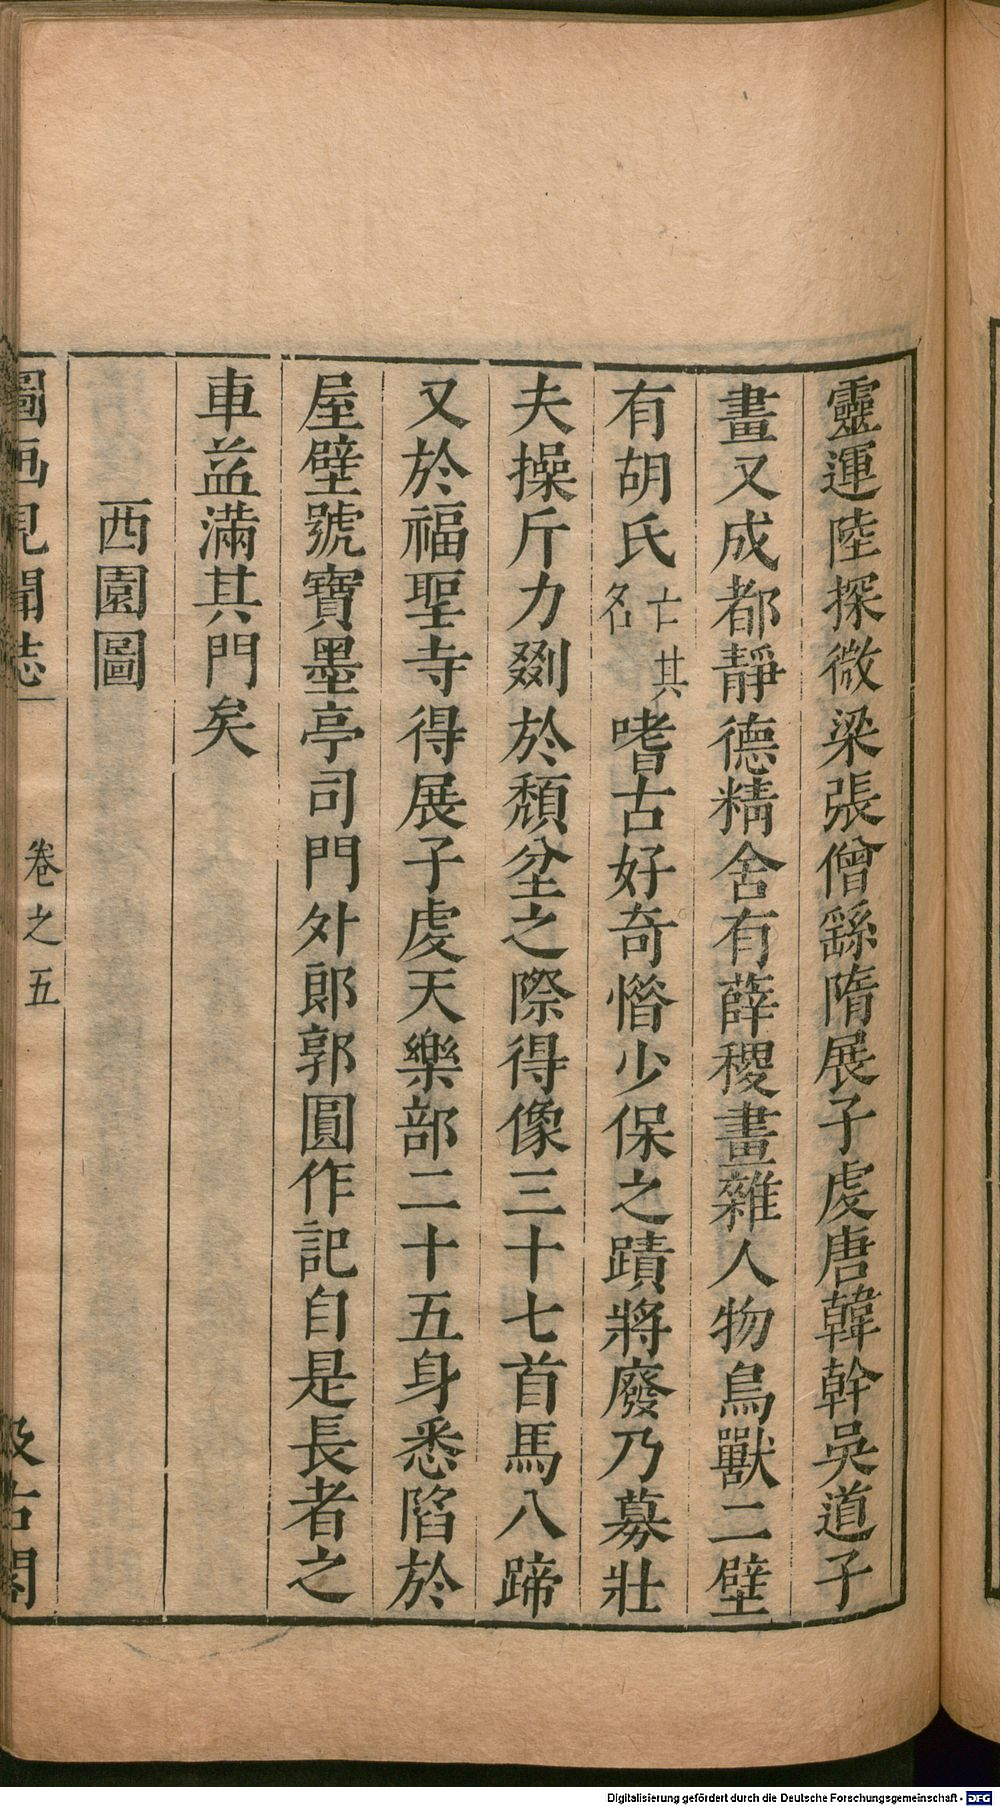 靈運陸探微梁張僧繇隋展子虔唐韓幹吳道子
畫又成都靜德精舍有薛稷畫雜人物鳥獸二壁
有胡氏亡其名嗜古好奇惜少保之蹟將廢乃募壯
夫操斤力剟於頹坌之際得像三十七首馬八蹄
又於福聖寺得展子虔天樂部二十五身悉陷於
屋壁號寶墨亭司門外郎郭圓作記自是長者之
車益滿其門矣
西園圖
圖画見聞志
卷之五
汲古閣
Digitalisierung gefördert durch die Deutsche Forschungsgemeinschaft - DFG